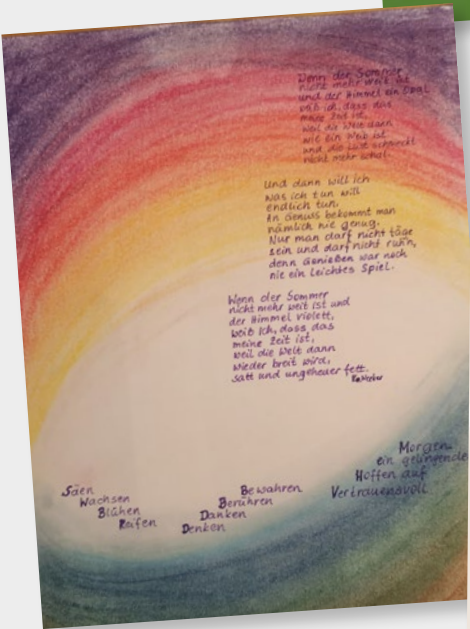 Denn der Sommer
nicht mehr weit ist
und der Himmel ein Opal
weiß ich, dass das
meine Zeit ist,
weil die Welt dann
wie ein Weib ist
und die Lust schmeckt
nicht mehr schal.
Und dann will ich
was ich tun will
endlich tun.
An Genuss bekommt man
nämlich nie genug.
Nur man darf nicht träge
sein und darf nicht ruhn,
denn Genießen war noch
nie ein leichtes Spiel.
Wenn der Sommer
nicht mehr weit ist und
der Himmel violett,
weiß ich, dass das
meine Zeit ist,
weil die Welt dann
wieder breit wird,
satt und ungeheuer fett.
Säen
Wachsen
Blühen
Reifen
Bewahren
Berühren
Danken
Denken
Morgen
ein gelingendes
Hoffen auf
Vertrauensvoll